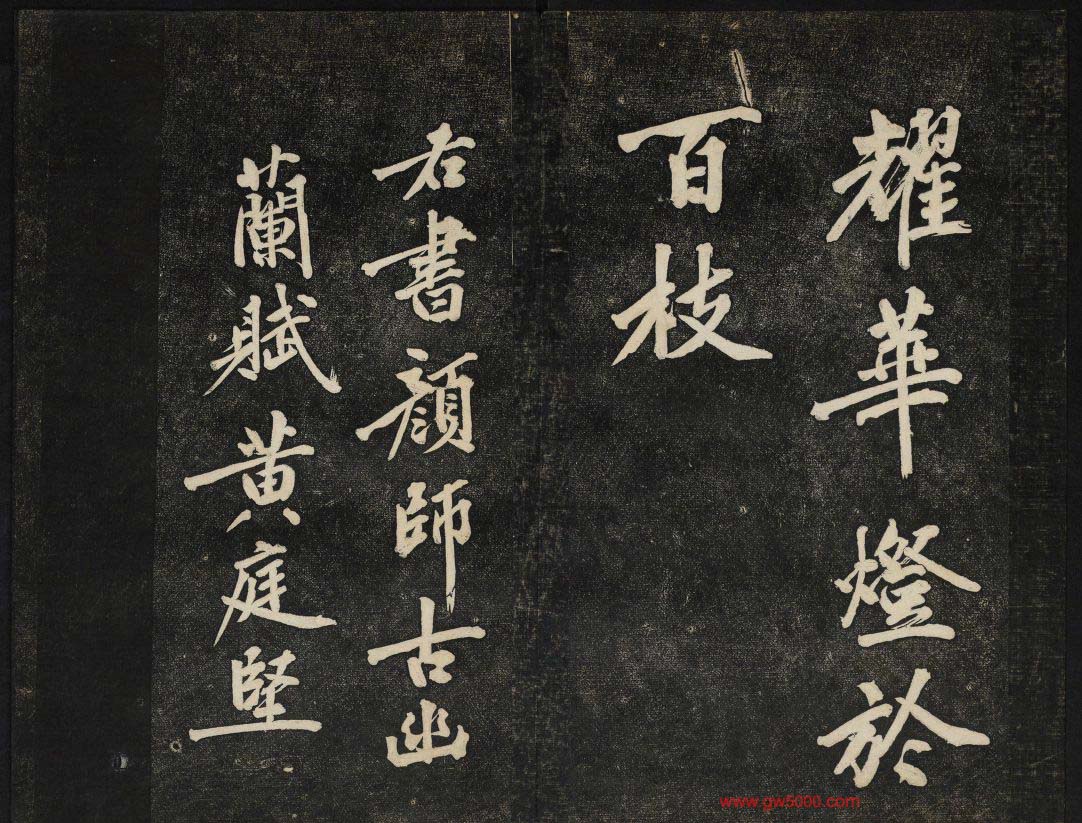 耀華燈於
百枝
右書顏師古幽
蘭賦黃庭堅
www.gw5000.com